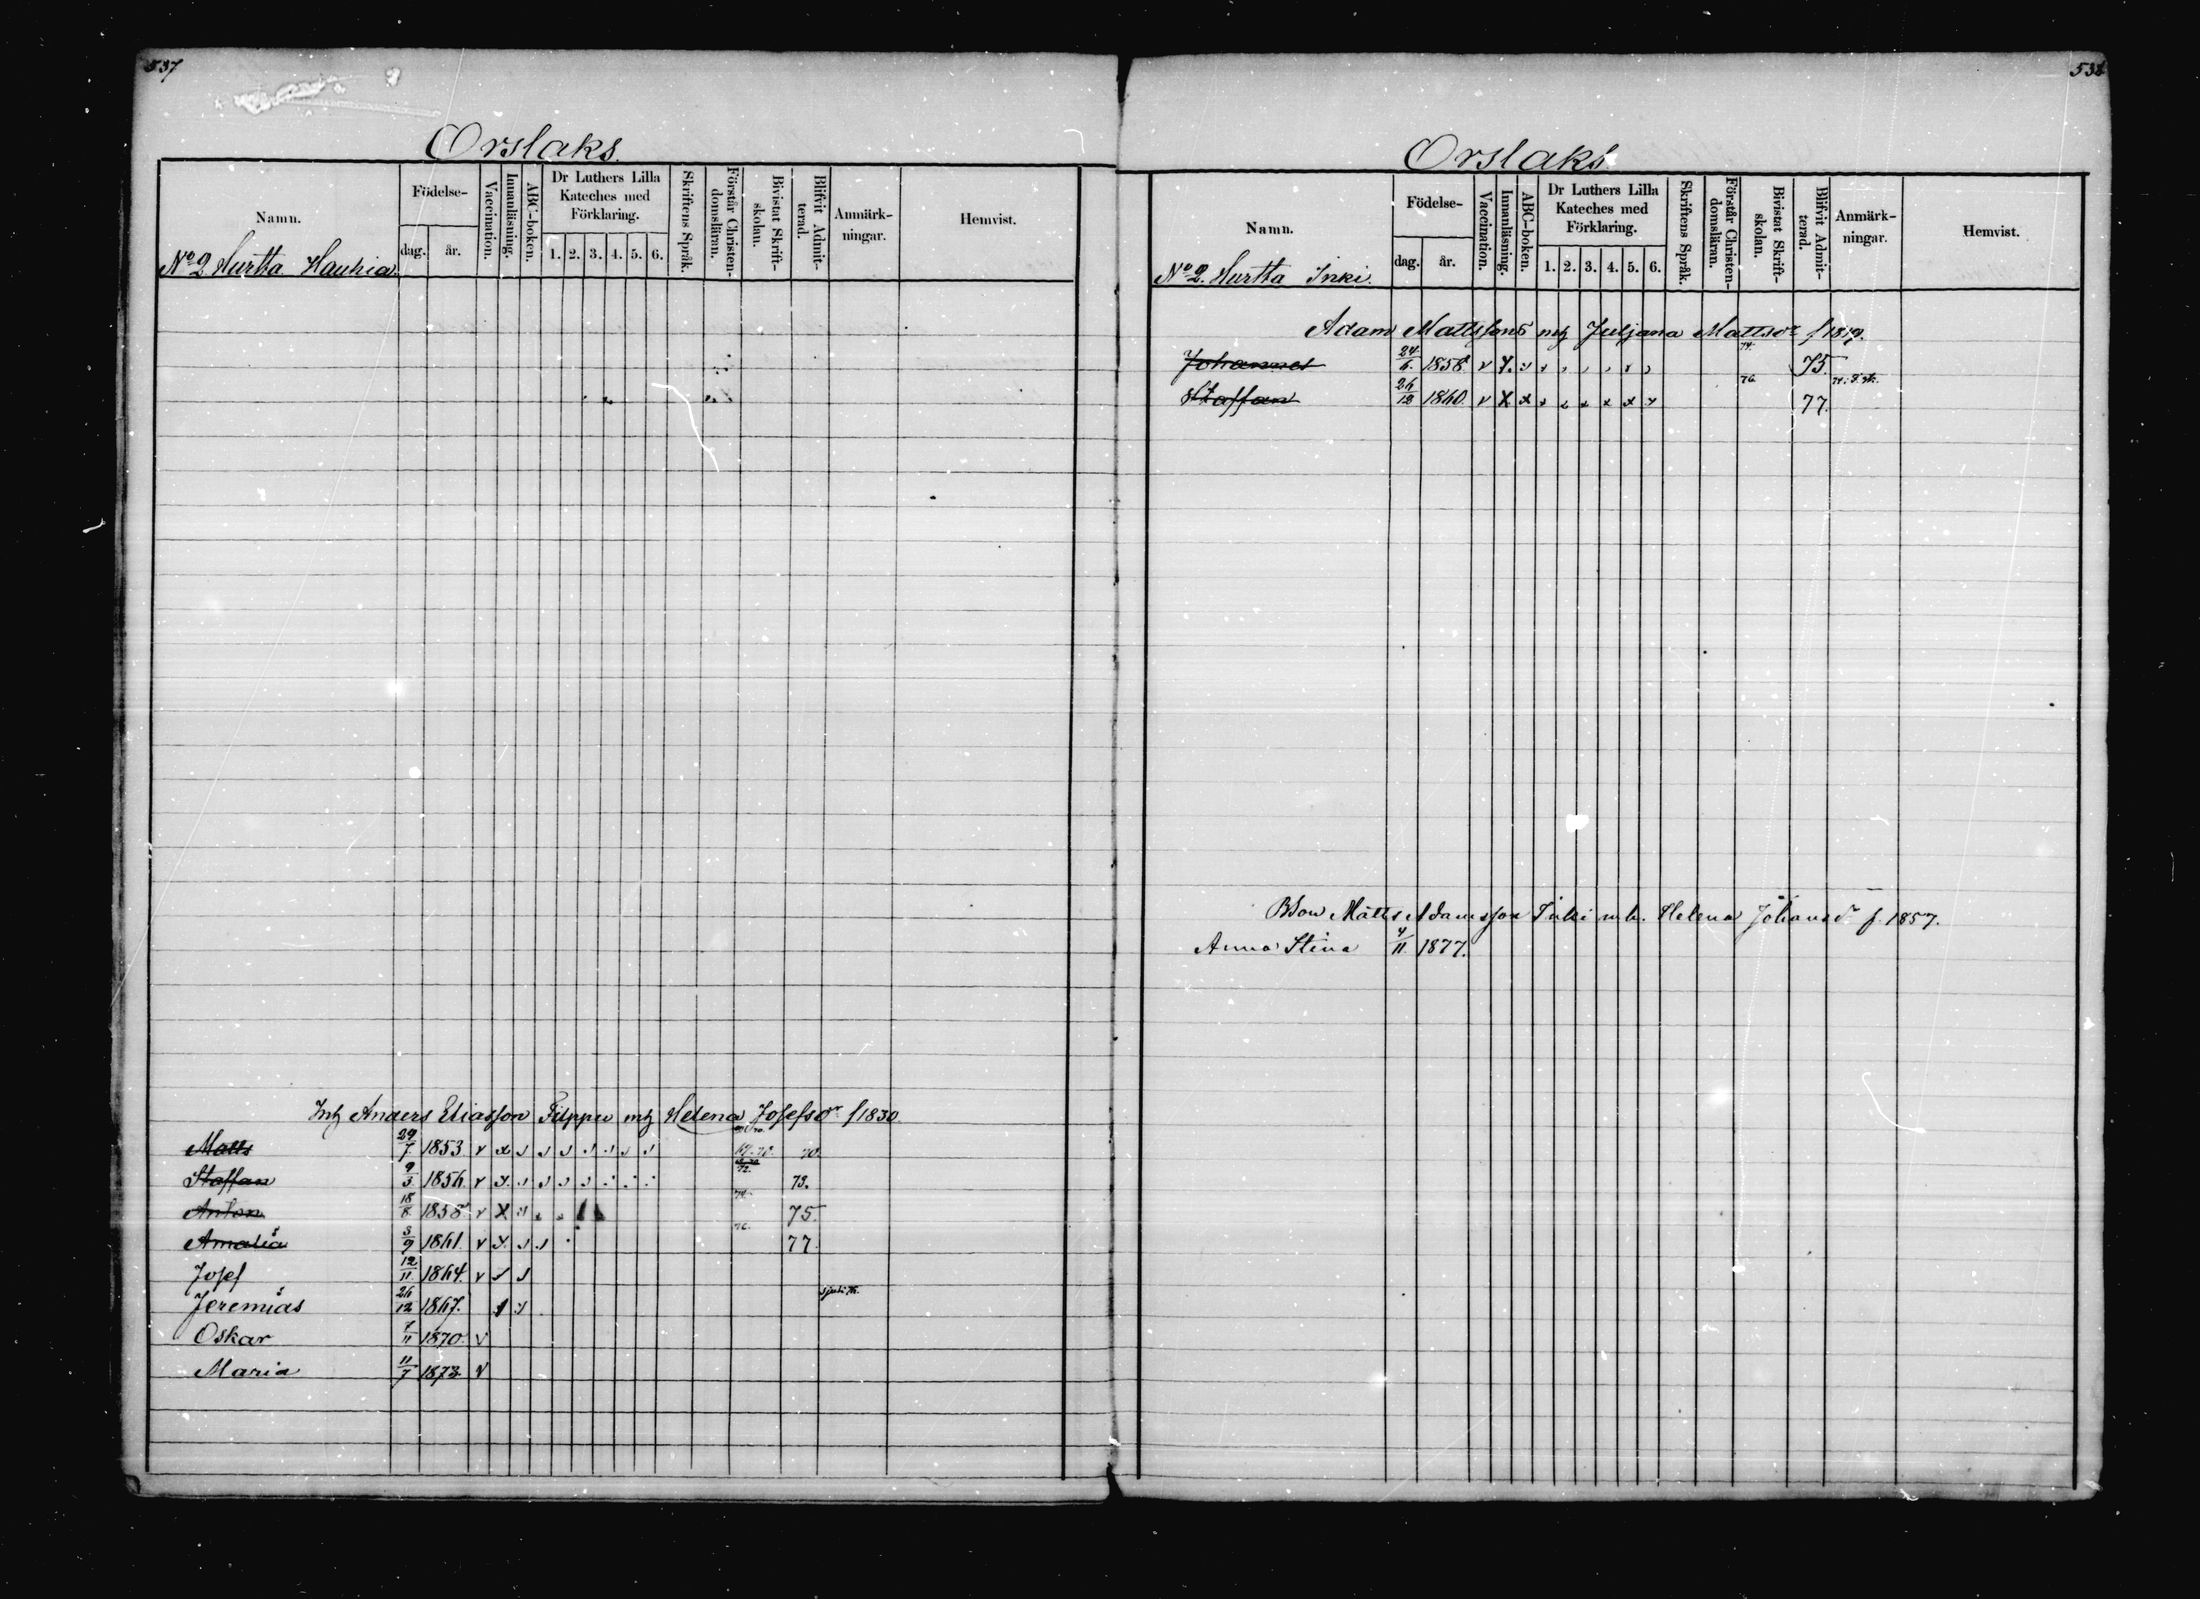 537
Orslaks.
Namn.
Födelse-
dag. år.
Vaccination.
Innanläsning.
ABC-boken.
Dr Luthers Lilla Kateches med Förklaring.
1. 2. 3. 4. 5. 6.
Skriftens Språk.
Förstår Christen-domsläran.
Bivistat Skrift-skolan.
Blifvit Admit-terad.
Anmärk-ningar.
Hemvist.
No 2 Hurtta Hauhia.
Anders Eliasson Filppu Helena Josefsdr f 1830.
Matts 29/7 1853 v x 69. 70. 70.
Staffan 9/3 1856. v x 72. 73.
Anton 18/8 1858 v x 74. 75.
Amalia 3/9 1861. v x 76. 77.
Josef 12/11 1864. v
Jeremias 26/12 1867.
Oskar 7/11 1870. v
Maria 11/7 1873. v
538
Orslaks
Namn.
Födelse-
dag. år.
Vaccination.
Innanläsning.
ABC-boken.
Dr Luthers Lilla Kateches med Förklaring.
1. 2. 3. 4. 5. 6.
Skriftens Språk.
Förstår Christen-domsläran.
Bivistat Skrift-skolan.
Blifvit Admit-terad.
Anmärk-ningar.
Hemvist.
No 2. Hurtta Inki.
Adam Mattsson Juljana Mattsdr f 1819.
Johannes 24/6 1858. v x 74. 75.
Staffan 26/12 1860. v x x 76. 77.
Bson Matts Adamsson Inki m. h. Helena Johansdr f. 1857.
Anna Stina 4/11 1877.